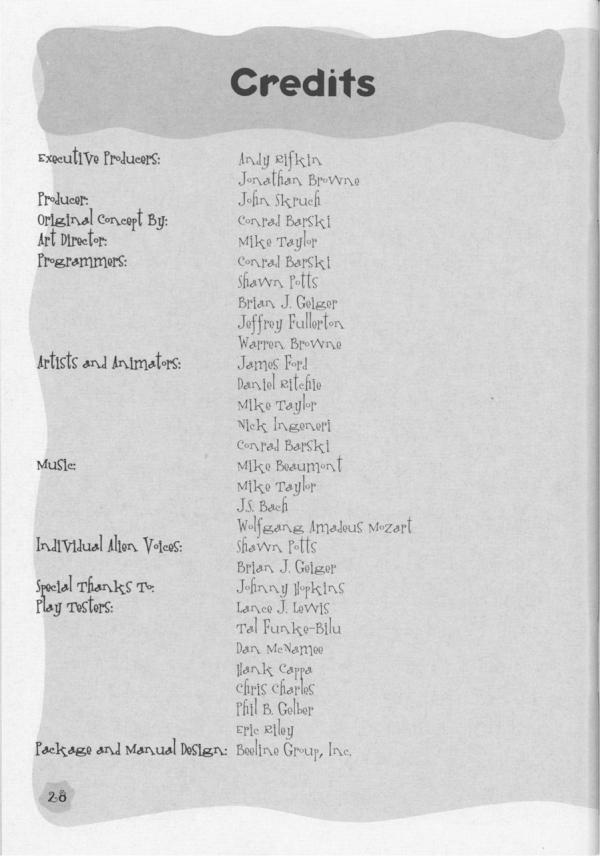 Credits
Executive Producers: Andy Rifkin
Jonathan Browne
Producer: John Skruch
Original Concept By: Conrad Barski
Art Director: Mike Taylor
Programmers: Conrad Barski
Shawn Potts
Brian J. Geiger
Jeffrey Fullerton
Warren Browne
Artists and Animators: James Ford
Daniel Ritchie
Mike Taylor
Nick Ingeneri
Conrad Barski
Music: Mike Beaumont
Mike Taylor
J.S. Bach
Wolfgang Amadeus Mozart
Individual Alien Voices: Shawn Potts
Brian J. Geiger
Special Thanks To: Johnny Hopkins
Play Testers: Lance J. Lewis
Tal Funke-Bilu
Dan McNamee
Hank Cappa
Chris Charles
Phil B. Gelber
Eric Riley
Package and Manual Design: Beeline Group, Inc.
28